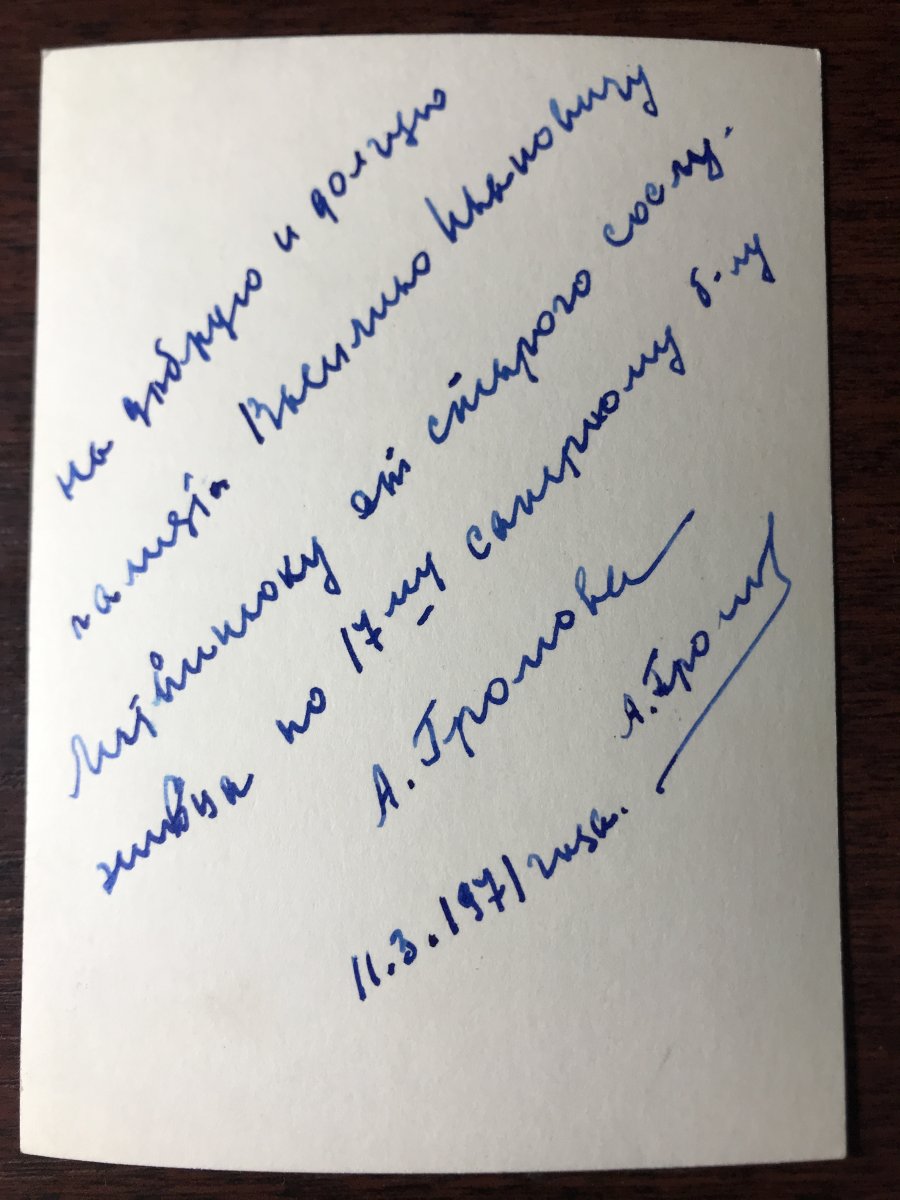 на добрую и долгую
память Василию Ивановичу
от старого сослу-
живца по 17му саперному б-ну
А. Громова
А. Гром
11.3.1971 года.